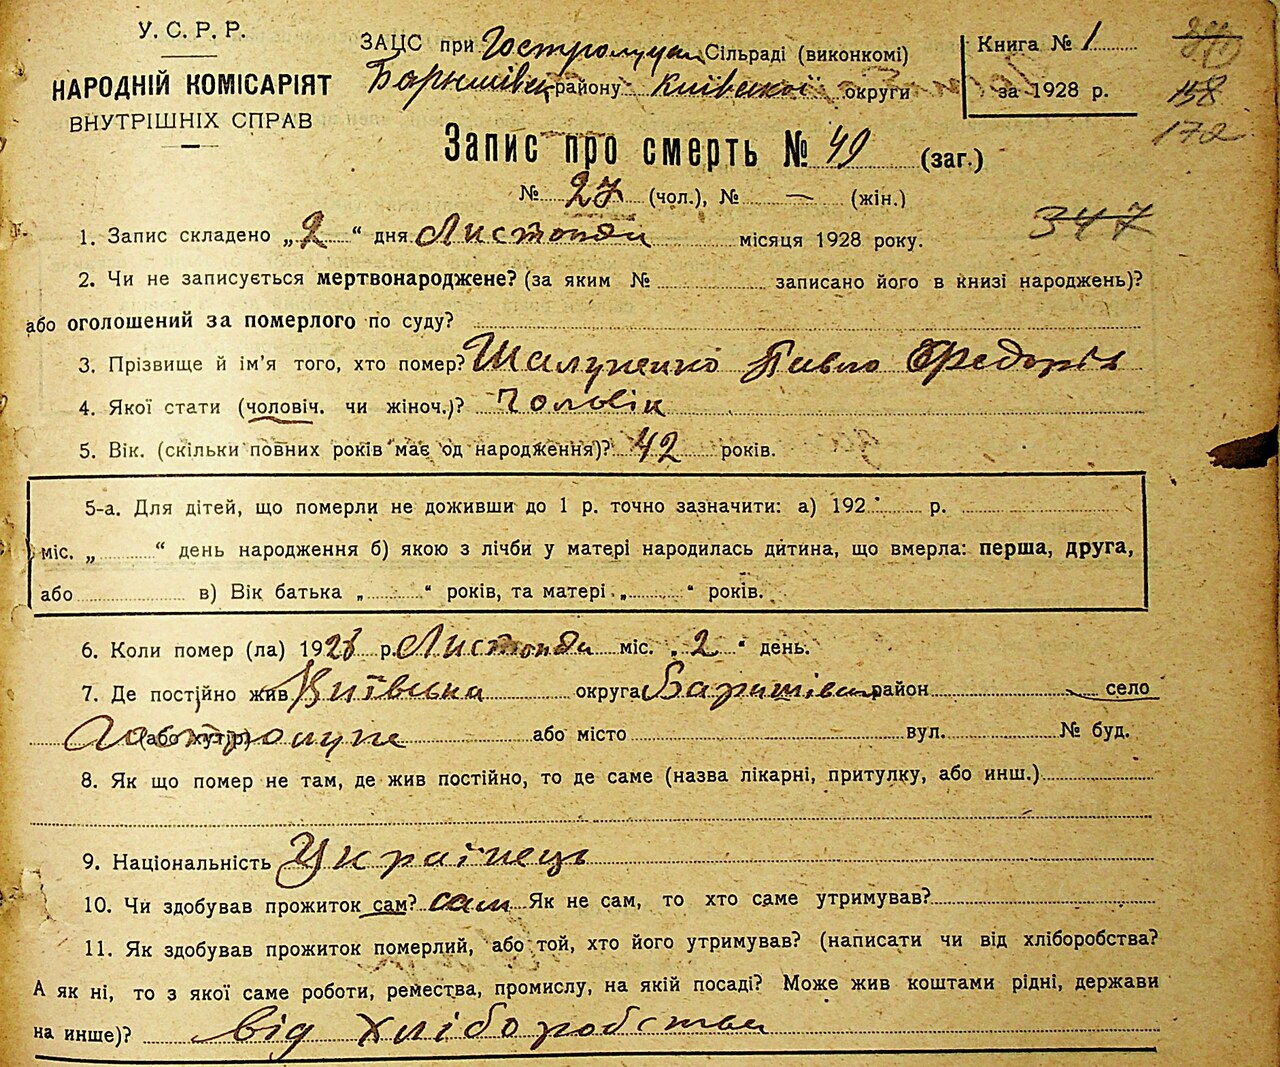 У. С. Р. Р.
НАРОДНІЙ КОМІСАРІЯТ
ВНУТРІШНІХ СПРАВ
ЗАЦС при Гостролуцьк Сільраді (виконкомі)
Баришівськ району Київської округи
Книга № 1
за 1928 р.
158
172
Запис про смерть № 49 (заг.)
№ 27 (чол.), № — (жін.)
347
1. Запис складено „2“ дня Листопада місяця 1928 року.
2. Чи не записується мертвонароджене? (за яким № записано його в книзі народжень)?
або оголошений за померлого по суду?
3. Прізвище й ім'я того, хто помер? Шалупенко Павло Федорів
4. Якої стати (чоловіч. чи жіноч.)? Чоловік
5. Вік. (скільки повних років має од народження)? 42 років.
5-а. Для дітей, що померли не доживши до 1 р. точно зазначити: а) 192 р.
міс. „ “ день народження б) якою з лічби у матері народилась дитина, що вмерла: перша, друга,
або в) Вік батька „ “ років, та матері „ “ років.
6. Коли помер (ла) 1928 р. Листопада міс. „2“ день.
7. Де постійно жив Київська округа Баришівськ район село
(або хутір) Гостролуче або місто вул. № буд.
8. Як що помер не там, де жив постійно, то де саме (назва лікарні, притулку, або инш.)
9. Національність Українець
10. Чи здобував прожиток сам? сам Як не сам, то хто саме утримував?
11. Як здобував прожиток померлий, або той, хто його утримував? (написати чи від хліборобства?
А як ні, то з якої саме роботи, ремества, промислу, на якій посаді? Може жив коштами рідні, держави
на инше)? від хліборобства